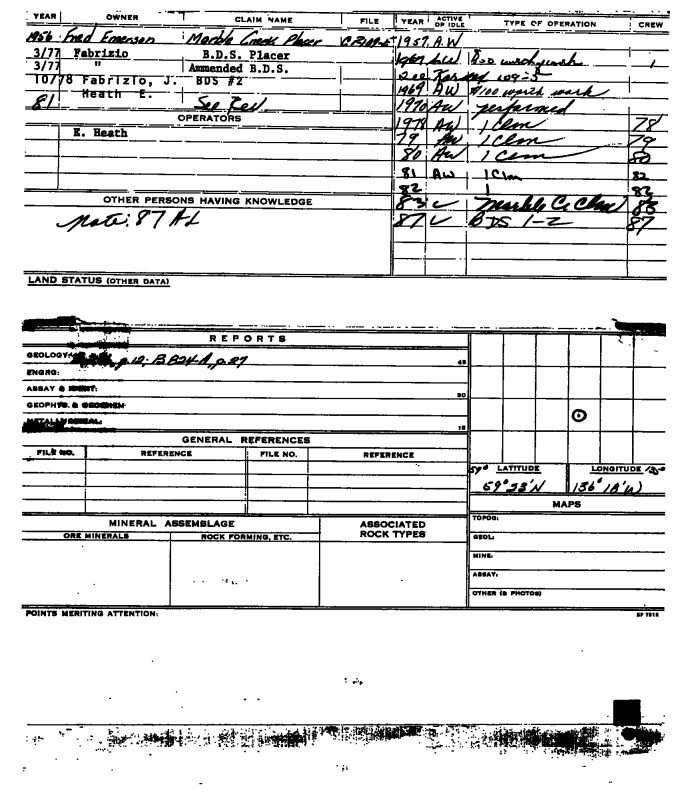 YEAR OWNER CLAIM NAME FILE YEAR ACTIVE OR IDLE TYPE OF OPERATION CREW
1956 Fred Emerson Marble Creek Placer 1957 A.W
3/77 Fabrizio B.D.S. Placer
3/77 " Ammended B.D.S.
10/78 Fabrizio, J. BDS #2
Heath E. 1969 AW $100 worth work
81 See 1970 AW performed
OPERATORS 1978 AW 1 Clm 78
E. Heath 79 AW 1 Clm 79
80 AW 1 Clm 80
81 AW 1 Clm 82
82 1 82
OTHER PERSONS HAVING KNOWLEDGE 83 Marble C. Clm 83
Note: 87 AL 87 BDS 1-2 87
LAND STATUS (OTHER DATA)
REPORTS
GEOLOGY p.12; B 824-A, p.27 45
ENGRG:
ASSAY & 30
GEOPHYS. & GEOCHEM
15
GENERAL REFERENCES
FILE NO. REFERENCE FILE NO. REFERENCE
59° LATITUDE LONGITUDE
59° 23'N 136° 18'W
MAPS
MINERAL ASSEMBLAGE ASSOCIATED ROCK TYPES
ORE MINERALS ROCK FORMING, ETC.
TOPOG:
GEOL:
MINE:
ASSAY:
OTHER (& PHOTOS)
POINTS MERITING ATTENTION: SP 7818